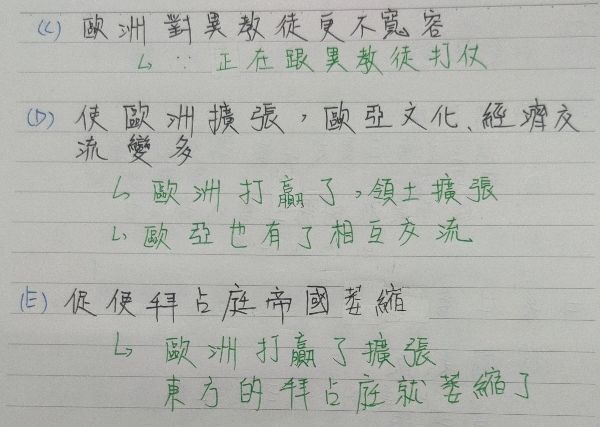 (C) 歐洲對異教徒更不寬容
↳ ∵ 正在跟異教徒打仗
(D) 使歐洲擴張，歐亞文化、經濟交
流變多
↳ 歐洲打贏了，領土擴張
↳ 歐亞也有了相互交流
(E) 促使拜占庭帝國萎縮
↳ 歐洲打贏了擴張
東方的拜占庭就萎縮了